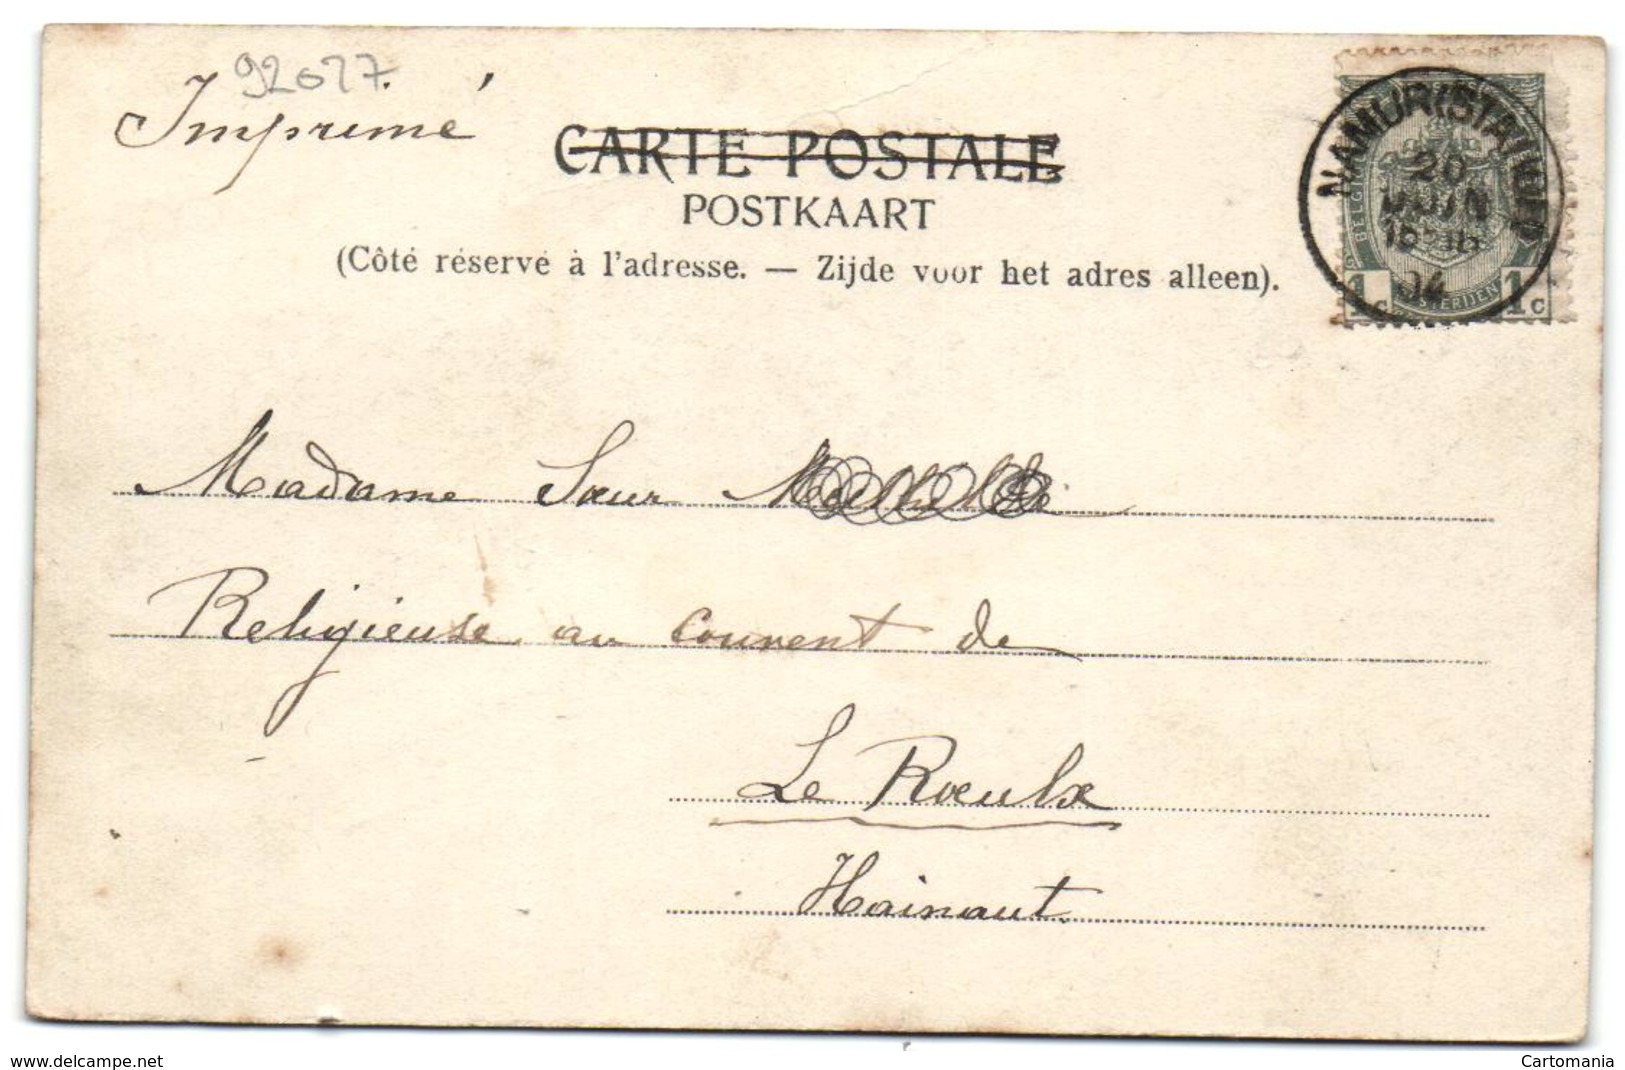 92077
Imprimé
CARTE POSTALE
POSTKAART
(Côté réservé à l'adresse. — Zijde voor het adres alleen).
NAMUR (STATION)
JUIN
04
1c 1c
Madame Sœur
Religieuse au couvent de
Le Rœulx
Hainaut.
www.delcampe.net
Cartomania